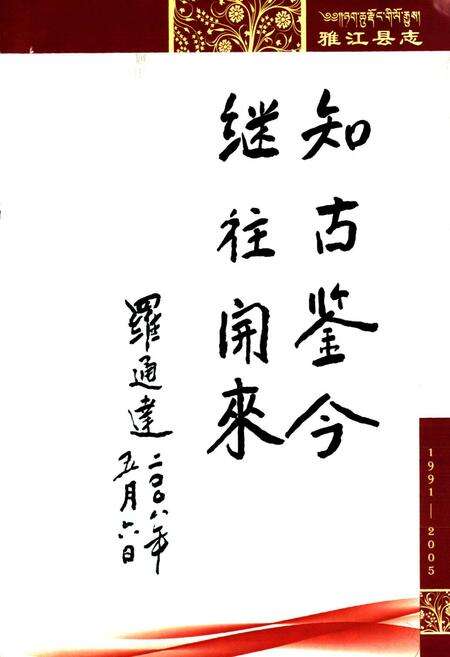 ༄༅།།ཉག་ཆུ་རྫོང་གི་ལོ་རྒྱུས།
雅江县志
知古鉴今
继往開來
羅通達
二〇〇八年
五月六日
1991—2005